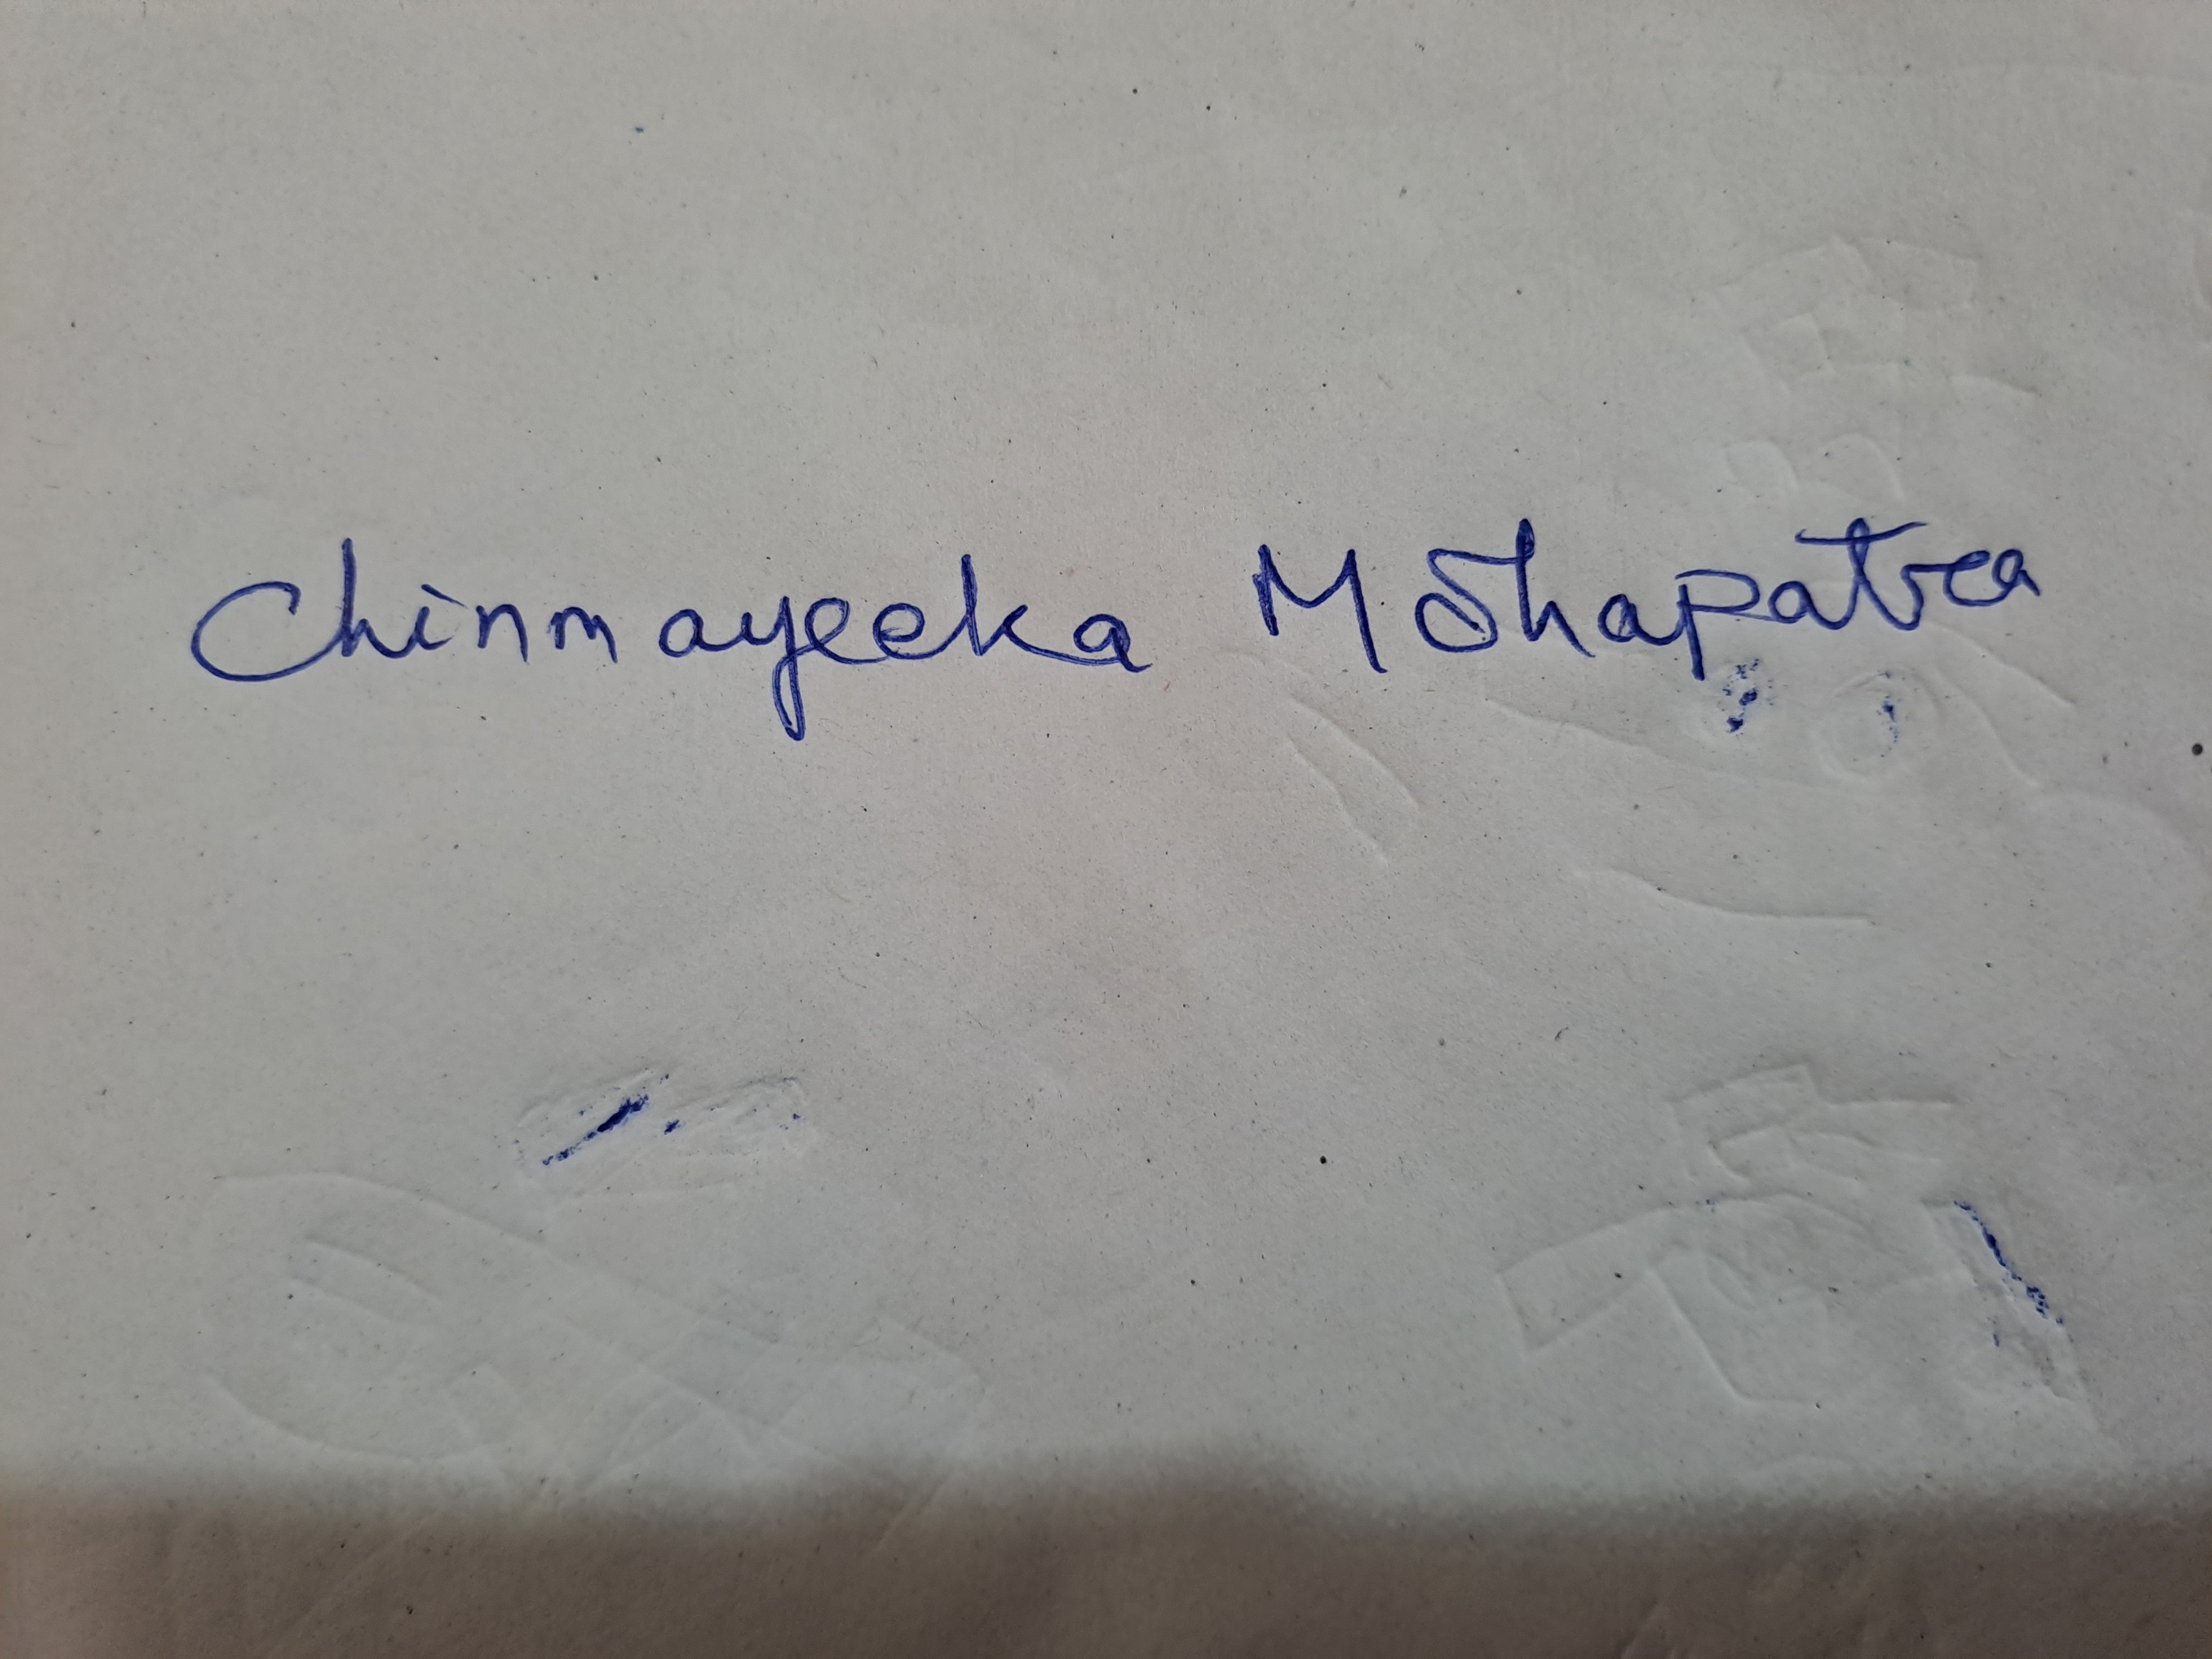 Chinmayeeka Mohapatra